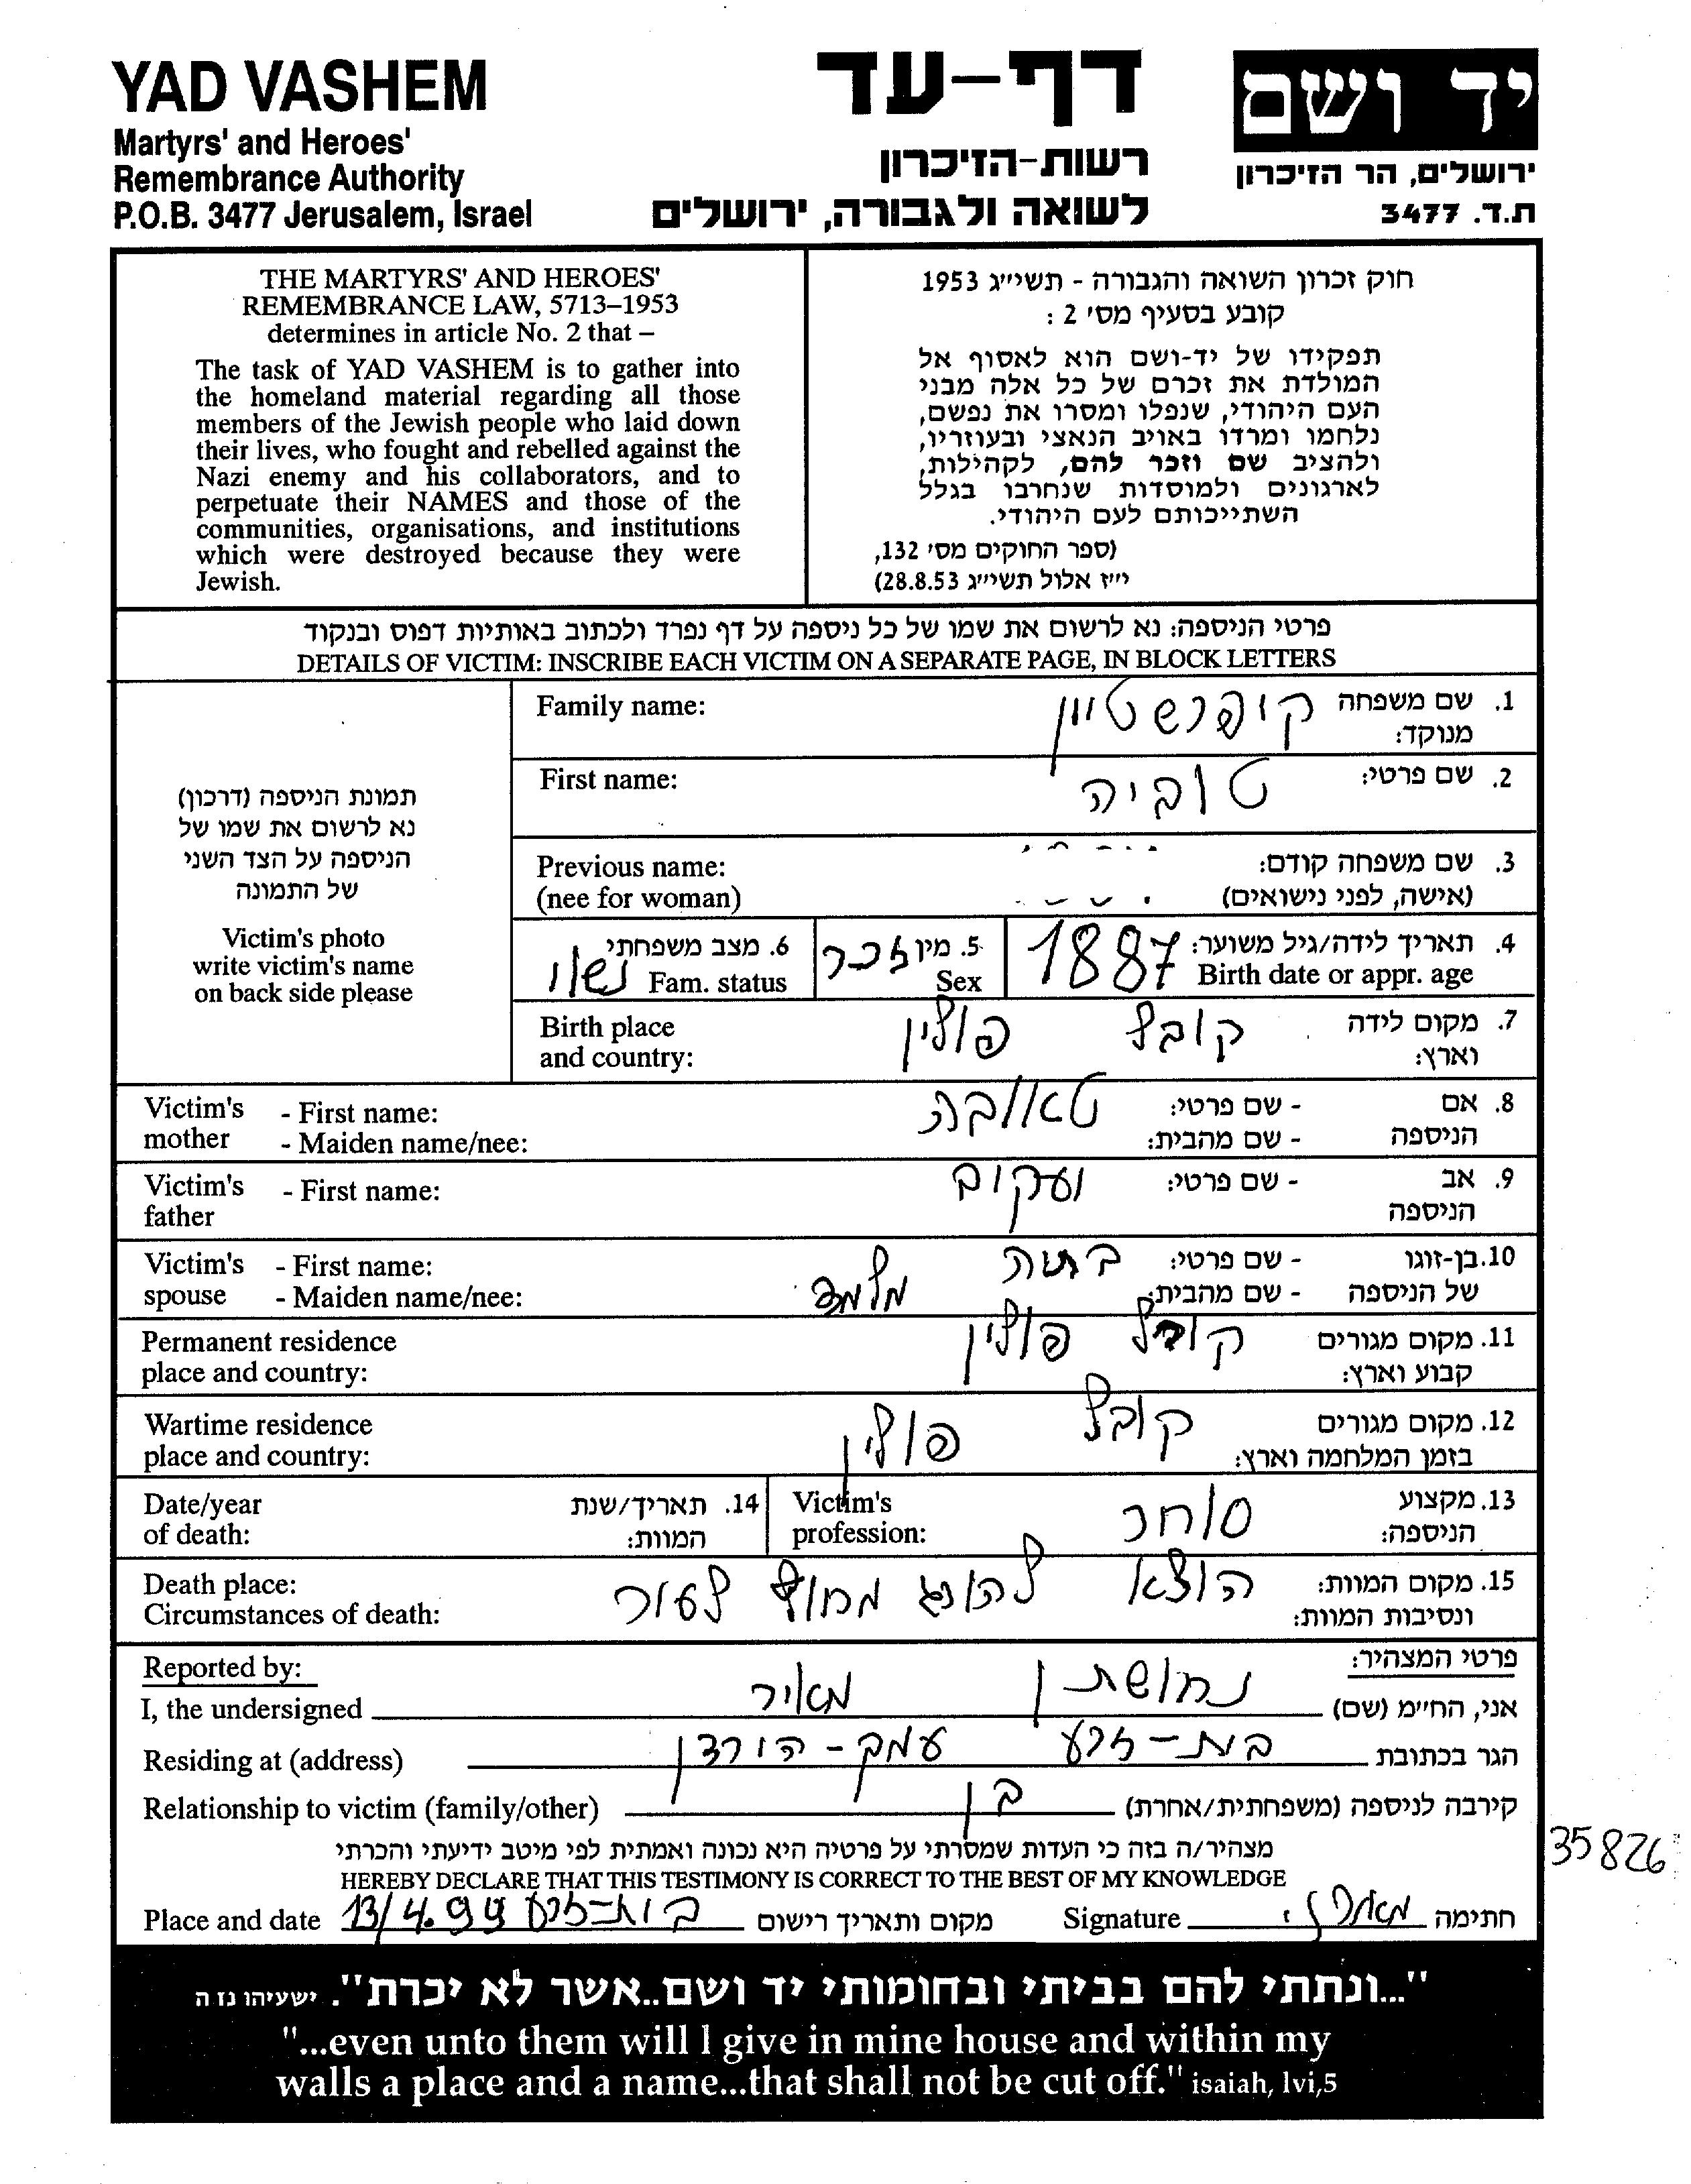 YAD VASHEM
Martyrs' and Heroes'
Remembrance Authority
P.O.B. 3477 Jerusalem, Israel
דף-עד
רשות-הזיכרון
לשואה ולגבורה, ירושלים
יד ושם
ירושלים, הר הזיכרון
ת.ד. 3477
THE MARTYRS' AND HEROES'
REMEMBRANCE LAW, 5713–1953
determines in article No. 2 that –
The task of YAD VASHEM is to gather into
the homeland material regarding all those
members of the Jewish people who laid down
their lives, who fought and rebelled against the
Nazi enemy and his collaborators, and to
perpetuate their NAMES and those of the
communities, organisations, and institutions
which were destroyed because they were
Jewish.
חוק זכרון השואה והגבורה - תשי״ג 1953
קובע בסעיף מס׳ 2 :
תפקידו של יד-ושם הוא לאסוף אל
המולדת את זכרם של כל אלה מבני
העם היהודי, שנפלו ומסרו את נפשם,
נלחמו ומרדו באויב הנאצי ובעוזריו,
ולהציב שם וזכר להם, לקהילות,
לארגונים ולמוסדות שנחרבו בגלל
השתייכותם לעם היהודי.
(ספר החוקים מס׳ 132,
י״ז אלול תשי״ג 28.8.53)
פרטי הניספה: נא לרשום את שמו של כל ניספה על דף נפרד ולכתוב באותיות דפוס ובנקוד
DETAILS OF VICTIM: INSCRIBE EACH VICTIM ON A SEPARATE PAGE, IN BLOCK LETTERS
תמונת הניספה (דרכון)
נא לרשום את שמו של
הניספה על הצד השני
של התמונה
Victim's photo
write victim's name
on back side please
1. שם משפחה מנוקד: קופרשטיין Family name:
2. שם פרטי: טוביה First name:
3. שם משפחה קודם: Previous name:
(אישה, לפני נישואים) (nee for woman)
4. תאריך לידה/גיל משוער: 1887 Birth date or appr. age
5. מין זכר Sex
6. מצב משפחתי נשוי Fam. status
7. מקום לידה וארץ: קובל פולין Birth place and country:
8. אם הניספה - שם פרטי: טאובה Victim's mother - First name:
- שם מהבית: - Maiden name/nee:
9. אב הניספה - שם פרטי: יעקוב Victim's father - First name:
10. בן-זוגו של הניספה - שם פרטי: בתיה Victim's spouse - First name:
- שם מהבית: מלמד - Maiden name/nee:
11. מקום מגורים קבוע וארץ: קובל פולין Permanent residence place and country:
12. מקום מגורים בזמן המלחמה וארץ: קובל פולין Wartime residence place and country:
13. מקצוע הניספה: סוחר Victim's profession:
14. תאריך/שנת המוות: Date/year of death:
15. מקום המוות: הוצא להורג מחוץ לעיר Death place:
ונסיבות המוות: Circumstances of death:
פרטי המצהיר: Reported by:
אני, החי״מ (שם) נחושתן מאיר I, the undersigned
הגר בכתובת בית-זרע עמק-הירדן Residing at (address)
קירבה לניספה (משפחתית/אחרת) בן Relationship to victim (family/other)
35826
מצהיר/ה בזה כי העדות שמסרתי על פרטיה היא נכונה ואמתית לפי מיטב ידיעתי והכרתי
HEREBY DECLARE THAT THIS TESTIMONY IS CORRECT TO THE BEST OF MY KNOWLEDGE
Place and date 13/4.99 בית-זרע מקום ותאריך רישום Signature חתימה
"...ונתתי להם בביתי ובחומותי יד ושם..אשר לא יכרת". ישעיהו נז ה
"...even unto them will I give in mine house and within my
walls a place and a name...that shall not be cut off." isaiah, lvi,5